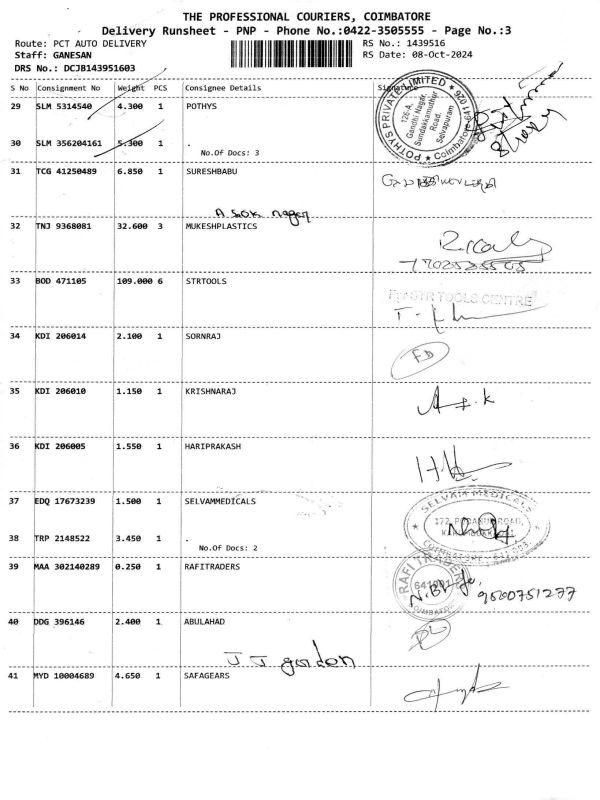 THE PROFESSIONAL COURIERS, COIMBATORE
Delivery Runsheet - PNP - Phone No.:0422-3505555 - Page No.:3
Route: PCT AUTO DELIVERY RS No.: 1439516
Staff: GANESAN RS Date: 08-Oct-2024
DRS No.: DCJB143951603
S No Consignment No Weight PCS Consignee Details Signature
29 SLM 5314540 4.300 1 POTHYS
POTHYS PRIVATE LIMITED
126-A,
Gandhi Nagar,
Sundakkamuthur
Road,
Selvapuram
Coimbatore-641 026
30 SLM 356204161 5.300 1 .
No.Of Docs: 3
31 TCG 41250489 6.850 1 SURESHBABU
A SOK nager
32 TNJ 9368081 32.600 3 MUKESHPLASTICS
33 BOD 471105 109.000 6 STRTOOLS
For STR TOOLS CENTRE
34 KDI 206014 2.100 1 SORNRAJ
35 KDI 206010 1.150 1 KRISHNARAJ
36 KDI 206005 1.550 1 HARIPRAKASH
37 EDQ 17673239 1.500 1 SELVAMMEDICALS
SELVAM MEDICALS
172,
ROAD,
COIMBATORE
38 TRP 2148522 3.450 1 .
No.Of Docs: 2
39 MAA 302140289 0.250 1 RAFITRADERS
RAFI TRADERS
641001
COIMBATORE
9500751277
40 DDG 396146 2.400 1 ABULAHAD
J J garden
41 MYD 10004689 4.650 1 SAFAGEARS